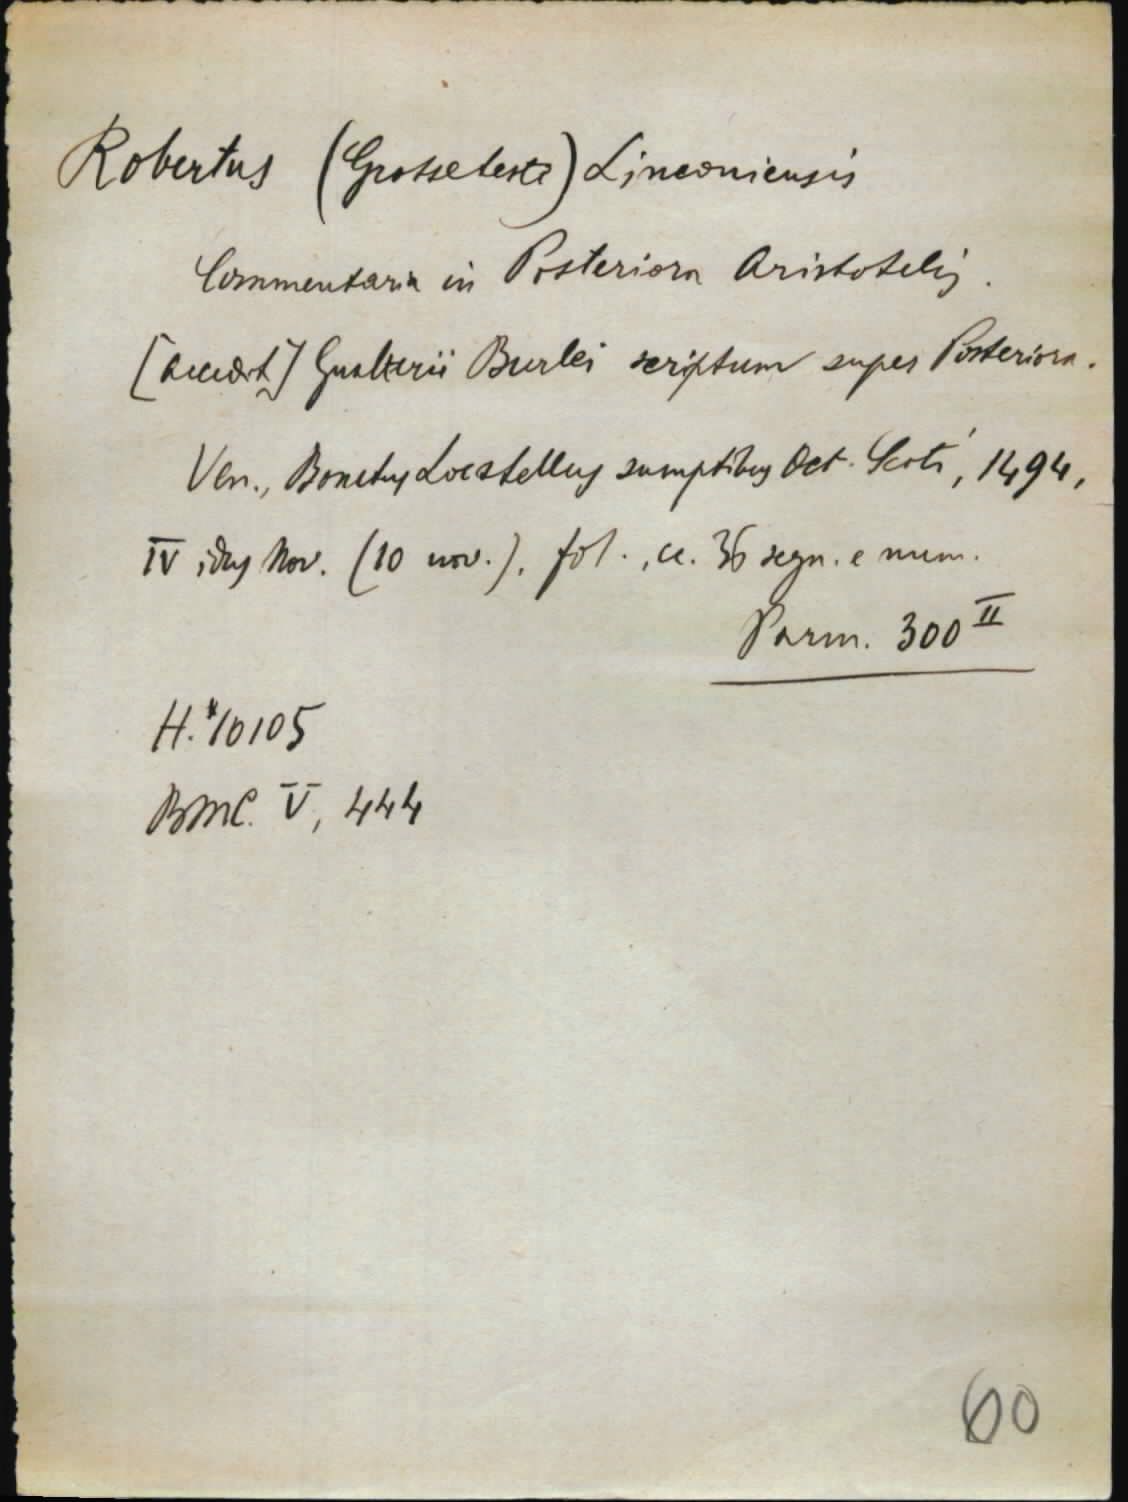 Robertus (Grosseteste) Linconiensis
Commentaria in Posteriora Aristotelis.
[Accedit] Gualterii Burlei scriptum super Posteriora.
Ven., Bonetus Locatellus sumptibus Oct. Scoti, 1494,
IV idus Nov. (10 nov.), fol., cc. 36 segn. e num.
Parm. 300 II
H.*10105
BMC. V, 444
60